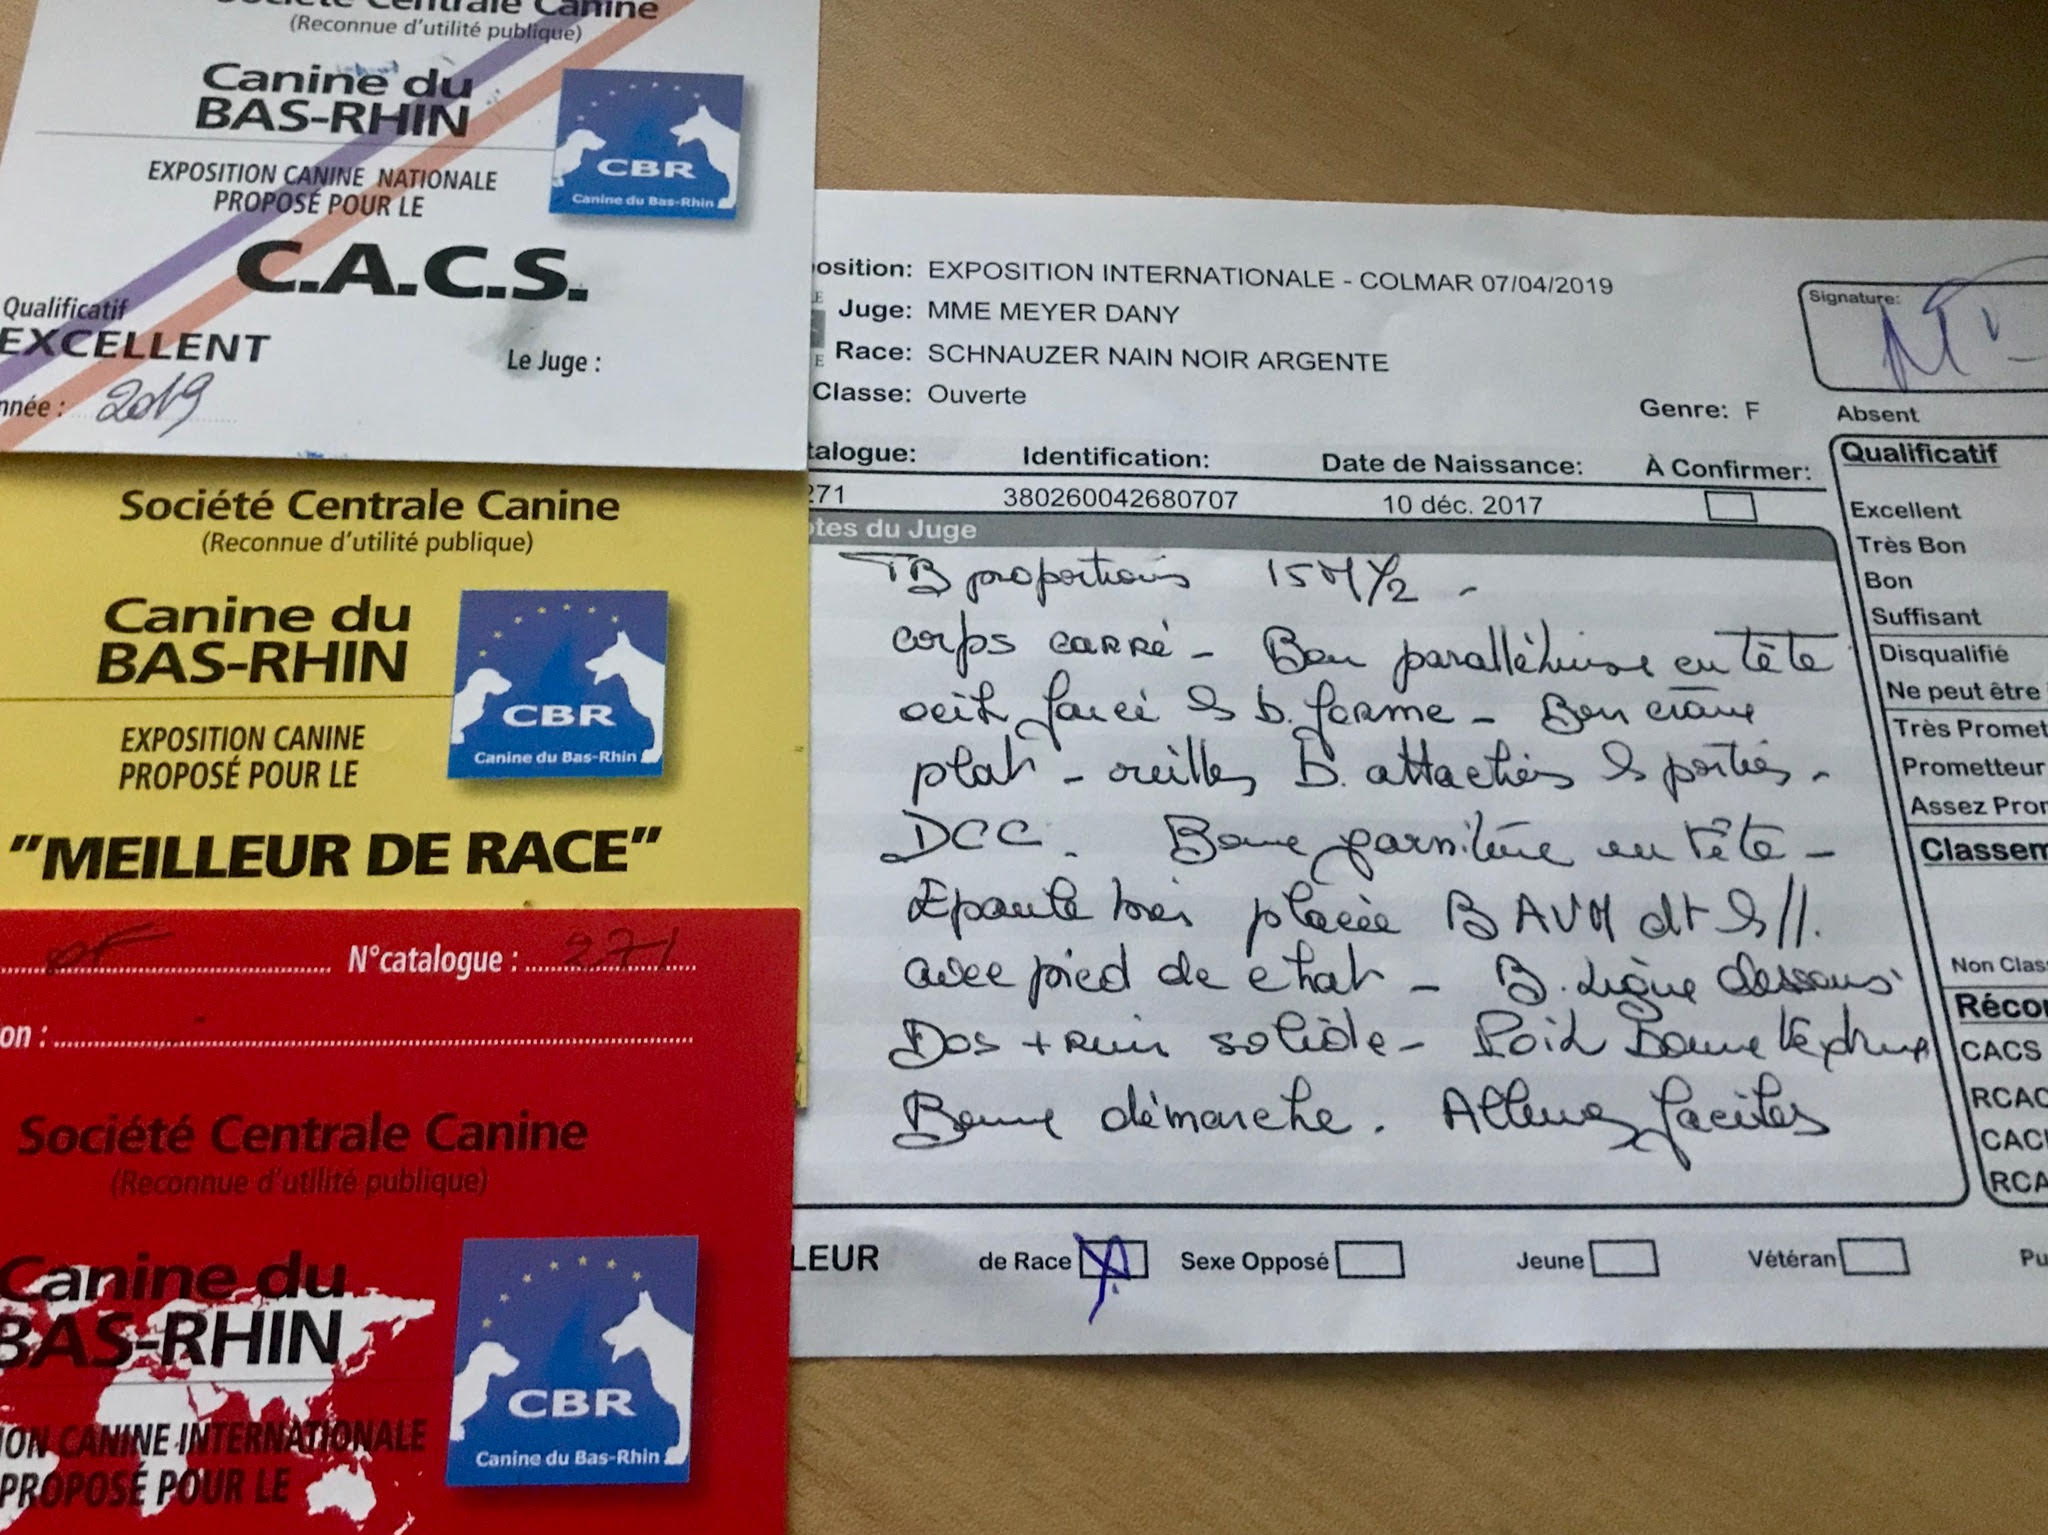 Société Centrale Canine
(Reconnue d'utilité publique)
Canine du
BAS-RHIN
CBR
Canine du Bas-Rhin
EXPOSITION CANINE NATIONALE
PROPOSÉ POUR LE
C.A.C.S.
Qualificatif
EXCELLENT
Le Juge :
nnée : 2019
Société Centrale Canine
(Reconnue d'utilité publique)
Canine du
BAS-RHIN
CBR
Canine du Bas-Rhin
EXPOSITION CANINE
PROPOSÉ POUR LE
"MEILLEUR DE RACE"
N°catalogue : 271
on :
Société Centrale Canine
(Reconnue d'utilité publique)
Canine du
BAS-RHIN
CBR
Canine du Bas-Rhin
ION CANINE INTERNATIONALE
PROPOSÉ POUR LE
osition: EXPOSITION INTERNATIONALE - COLMAR 07/04/2019
Juge: MME MEYER DANY
Race: SCHNAUZER NAIN NOIR ARGENTE
Classe: Ouverte
Genre: F
Signature:
Absent
talogue: Identification: Date de Naissance: À Confirmer:
271 380260042680707 10 déc. 2017
otes du Juge
TB proportions
corps carré - Bon parallélisme en tête
oeil foncé & b. forme - Bon crâne
plat - oreilles b. attachées & portées -
DCC. Bonne garniture en tête -
Epaule bien placée B AVM dt & //.
avec pied de chat - B. Ligne dessous
Dos + rein solide - Poil bonne texture
Bonne démarche. Allures faciles
LEUR de Race Sexe Opposé Jeune Vétéran Pu
Qualificatif
Excellent
Très Bon
Bon
Suffisant
Disqualifié
Ne peut être
Très Promet
Prometteur
Assez Pron
Classem
Non Clas
Récor
CACS
RCAC
CACI
RCA